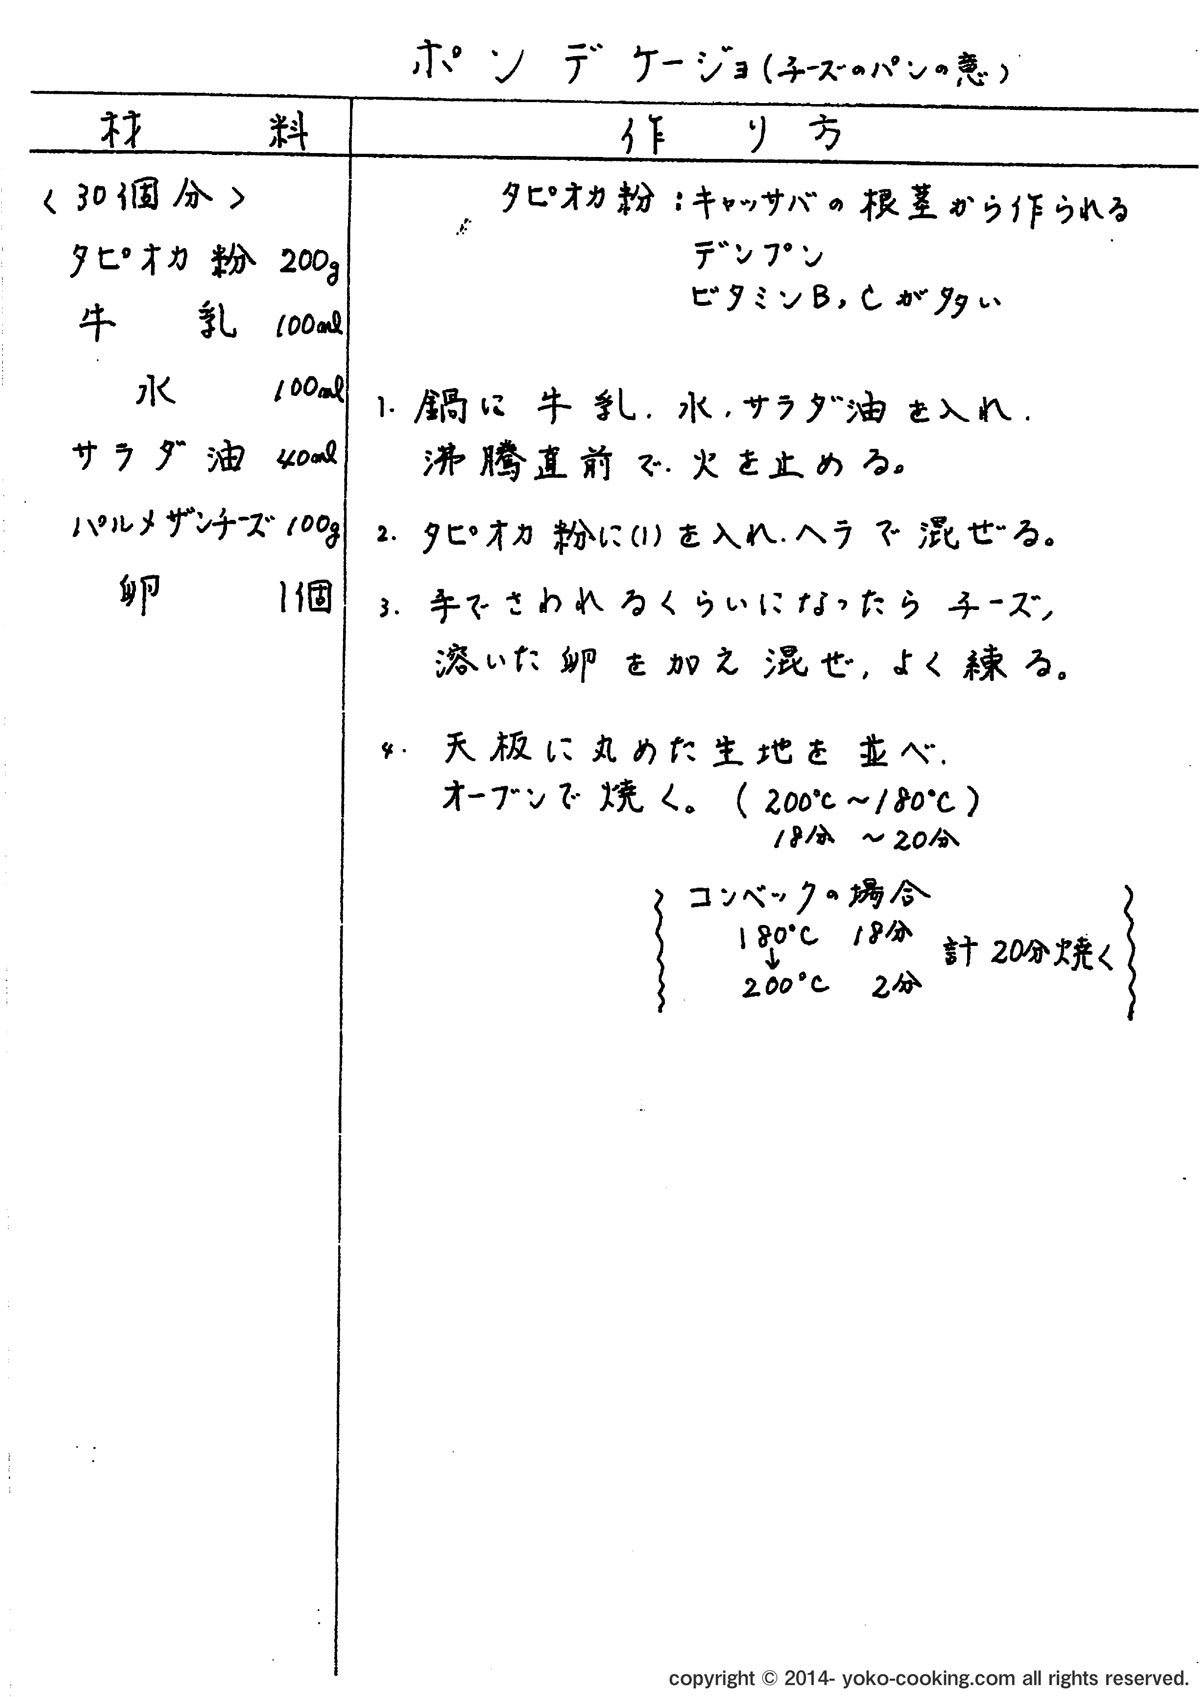 ポンデケージョ(チーズのパンの意)
材料
作り方
〈30個分〉
タピオカ粉 200g
牛乳 100ml
水 100ml
サラダ油 40ml
パルメザンチーズ 100g
卵 1個
タピオカ粉:キャッサバの根茎から作られる
デンプン
ビタミンB,Cが多い
1. 鍋に牛乳.水,サラダ油を入れ.
沸騰直前で.火を止める。
2. タピオカ粉に(1)を入れ.ヘラで混ぜる。
3. 手でさわれるくらいになったらチーズ,
溶いた卵を加え混ぜ,よく練る。
4. 天板に丸めた生地を並べ.
オーブンで焼く。(200℃〜180℃)
18分 〜20分
コンベックの場合
180℃ 18分
↓
計20分焼く
200℃ 2分
copyright © 2014- yoko-cooking.com all rights reserved.